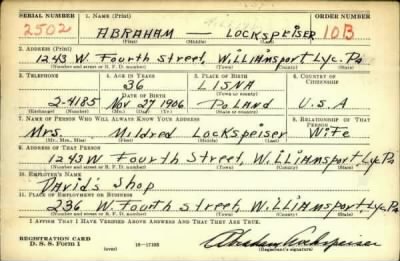 SERIAL NUMBER 1. NAME (Print) ORDER NUMBER
2502 ABRAHAM — LOCKSPEISER 10B
(First) (Middle) (Last)
2. ADDRESS (Print)
1243 W. Fourth Street, Williamsport Lyc. Pa
(Number and street or R. F. D. number) (Town) (County) (State)
3. TELEPHONE 4. AGE IN YEARS 5. PLACE OF BIRTH 6. COUNTRY OF CITIZENSHIP
36 LISNA
DATE OF BIRTH (Town or county)
2-4185 Nov 27 1906 Poland U.S.A
(Exchange) (Number) (Mo.) (Day) (Yr.) (State or country)
7. NAME OF PERSON WHO WILL ALWAYS KNOW YOUR ADDRESS 8. RELATIONSHIP OF THAT PERSON
Mrs. Mildred Lockspeiser Wife
(Mr., Mrs., Miss) (First) (Middle) (Last)
9. ADDRESS OF THAT PERSON
1243 W Fourth Street, Williamsport, Lyc. Pa
(Number and street or R. F. D. number) (Town) (County) (State)
10. EMPLOYER'S NAME
David's Shop
11. PLACE OF EMPLOYMENT OR BUSINESS
236 W. Fourth Street, Williamsport, Lyc. Pa.
(Number and street or R. F. D. number) (Town) (County) (State)
I AFFIRM THAT I HAVE VERIFIED ABOVE ANSWERS AND THAT THEY ARE TRUE.
REGISTRATION CARD
D. S. S. Form 1 (over) 16—17105 Abraham Lockspeiser
(Registrant's signature)